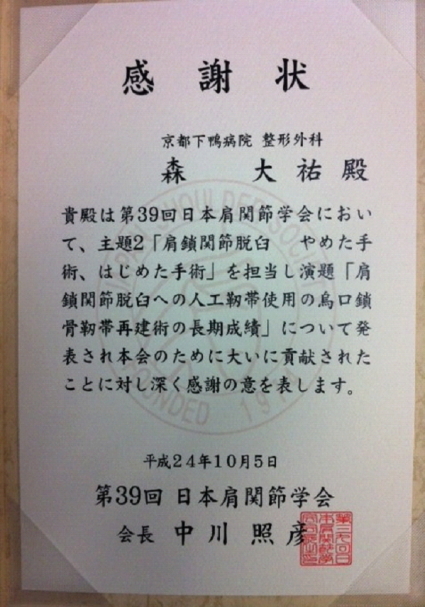 感謝状
京都下鴨病院 整形外科
森 大祐 殿
貴殿は第39回日本肩関節学会におい
て、主題2「肩鎖関節脱臼 やめた手
術、はじめた手術」を担当し演題「肩
鎖関節脱臼への人工靭帯使用の烏口鎖
骨靭帯再建術の長期成績」について発
表され本会のために大いに貢献された
ことに対し深く感謝の意を表します。
平成24年10月5日
第39回 日本肩関節学会
会長 中川 照彦
JAPAN SHOULDER SOCIETY
FOUNDED